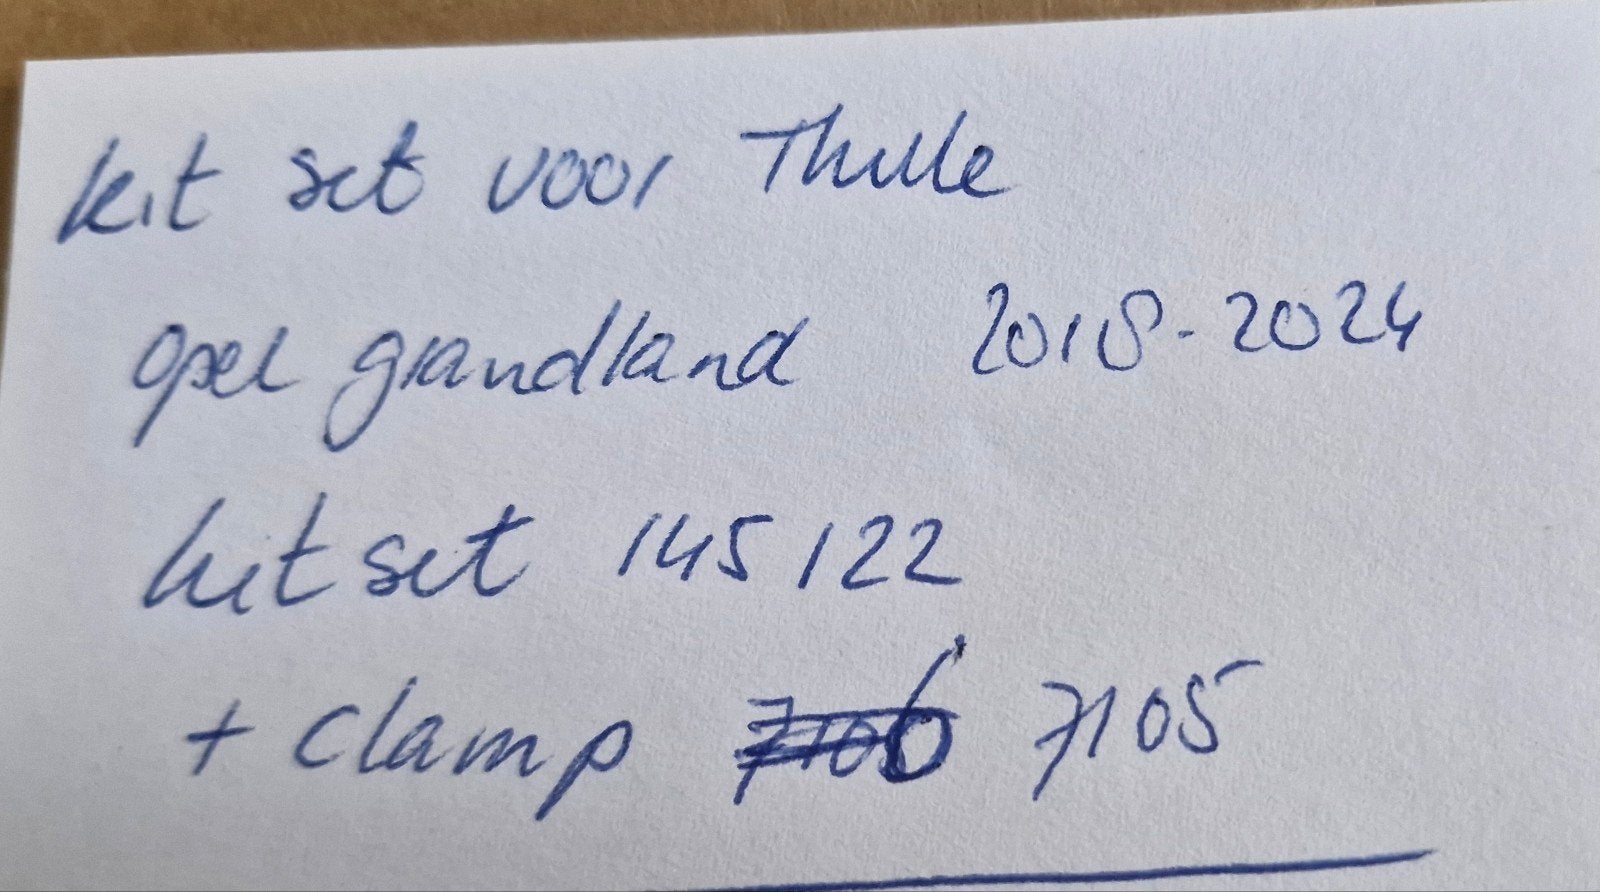 kit set voor Thulle
opel grandland 2018-2024
kit set 145122
+ clamp 7105